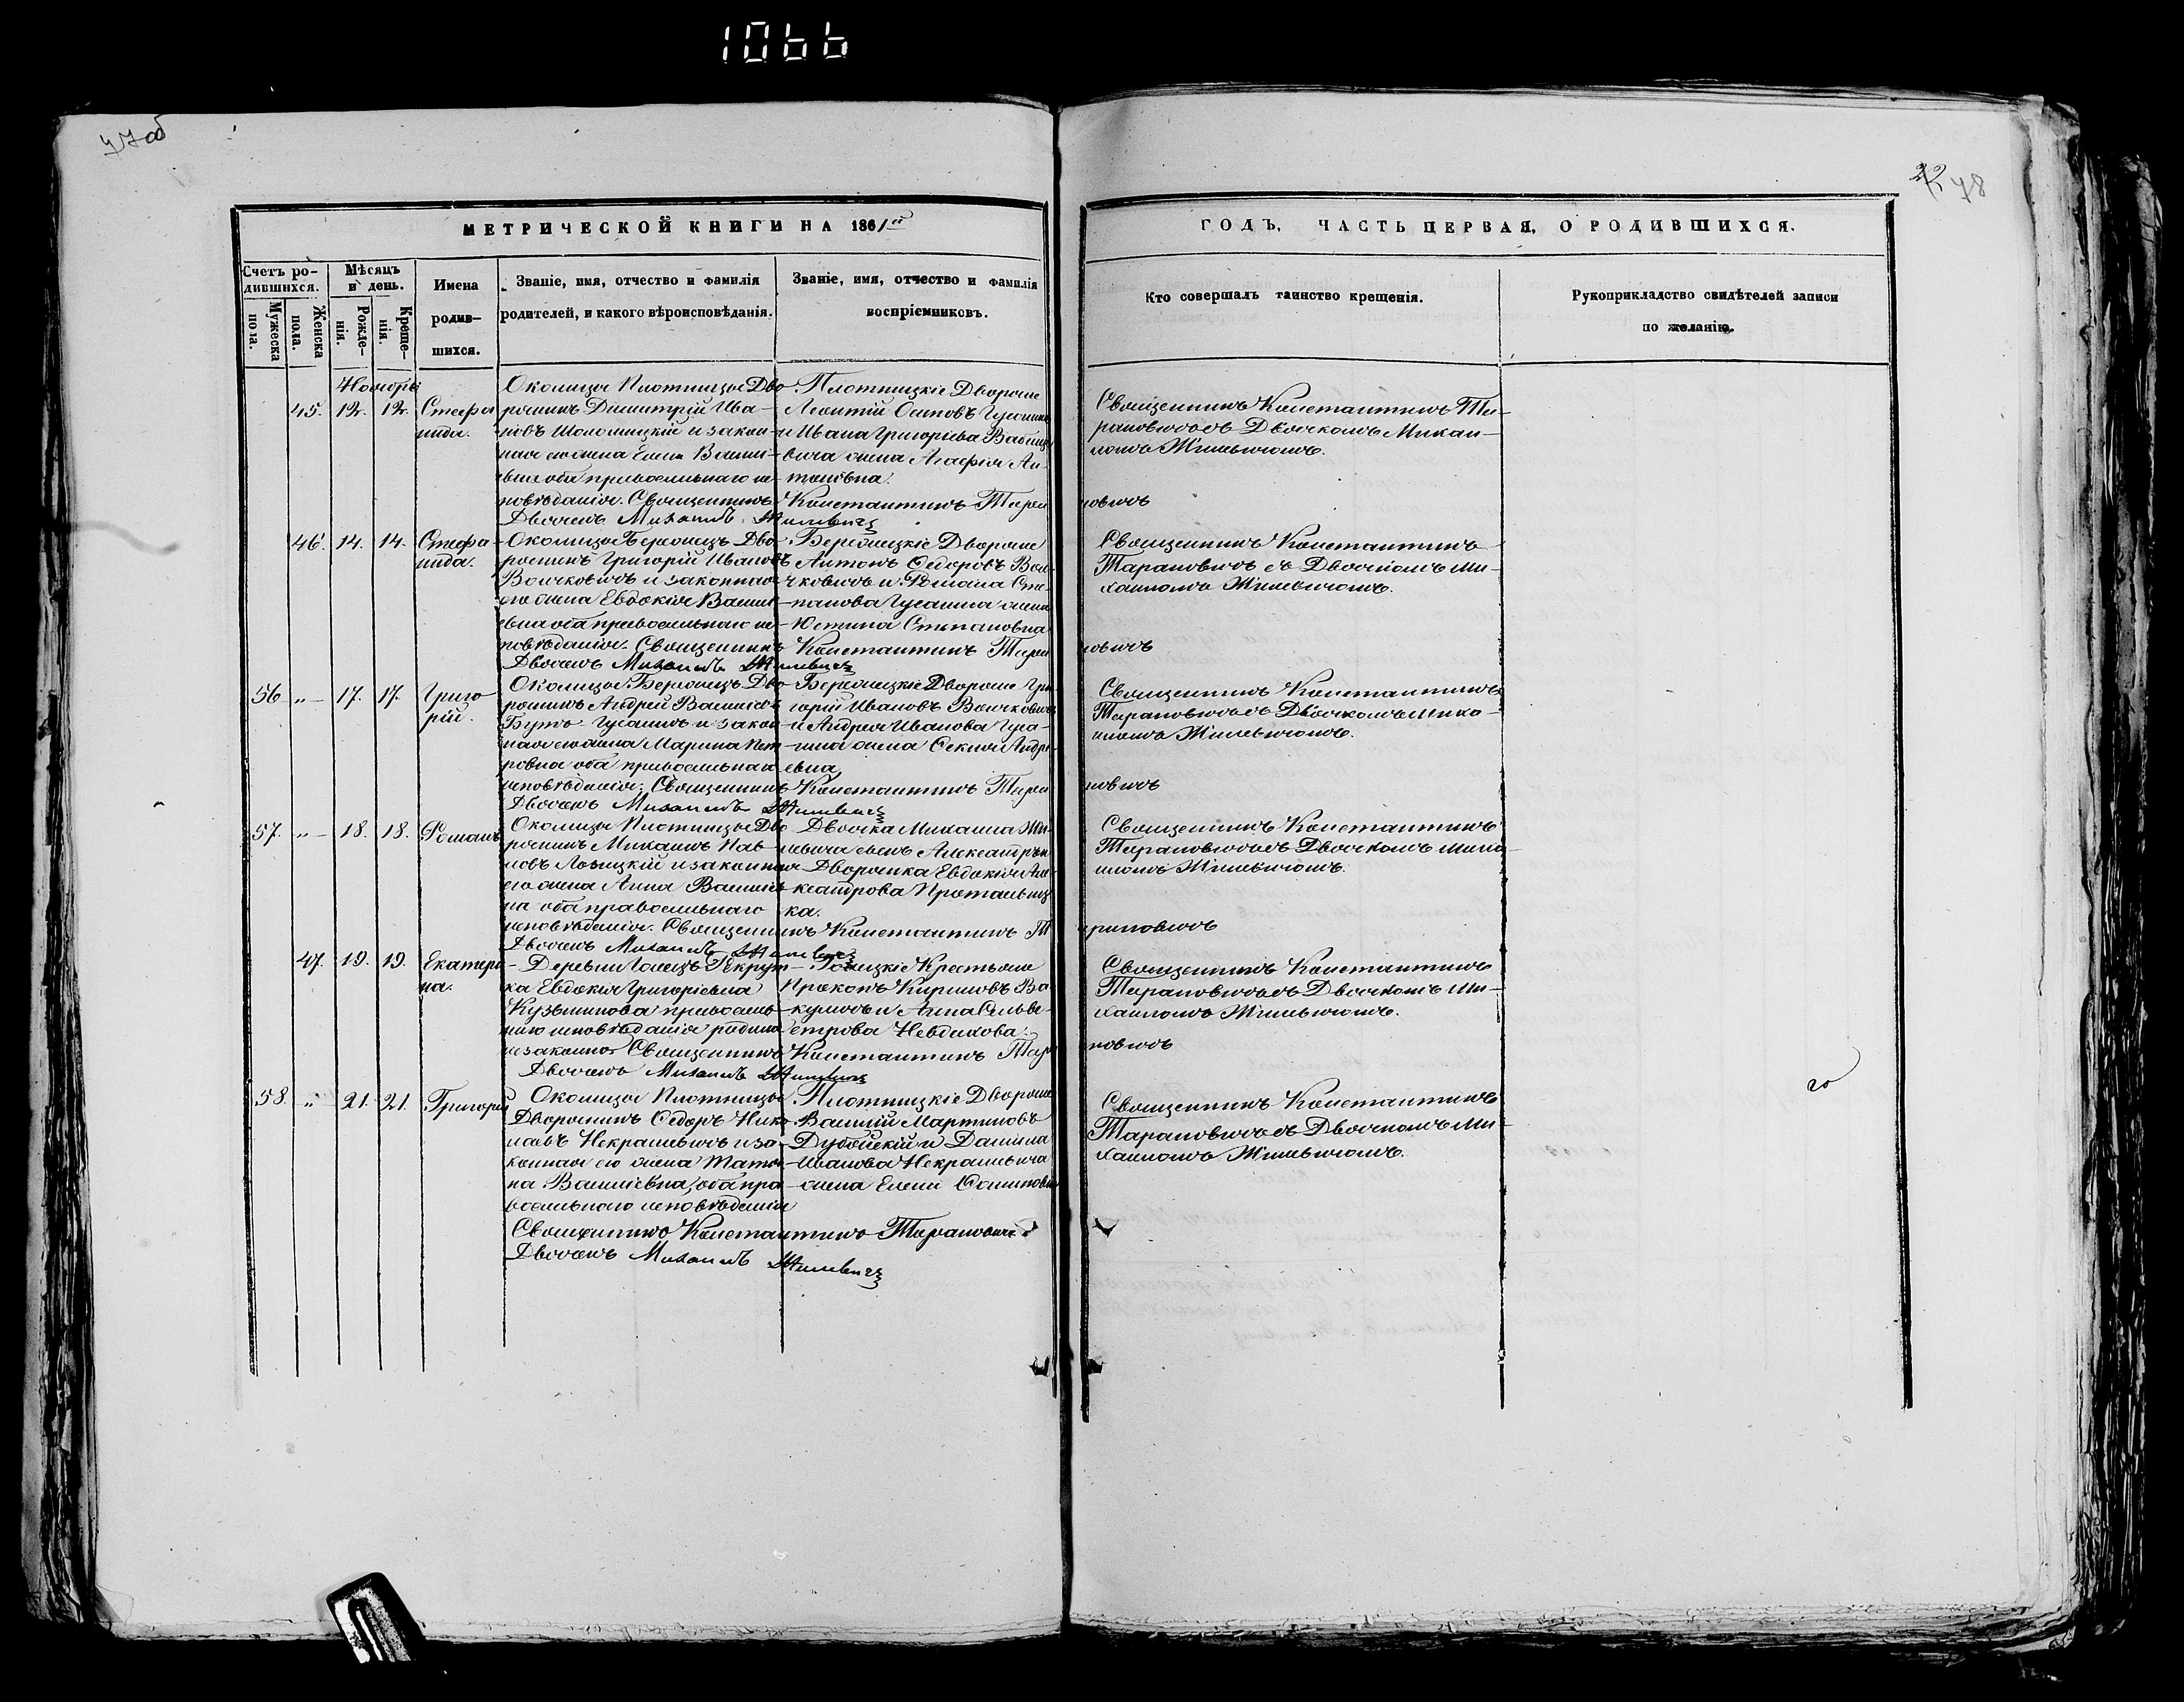 1066
47 об
42 48
МЕТРИЧЕСКОЙ КНИГИ НА 1861й
ГОДЪ, ЧАСТЬ ПЕРВАЯ, О РОДИВШИХСЯ.
Счетъ ро-
дившихся.
Мужеска
пола.
Женска
пола.
Мѣсяцъ
и день.
Рожде-
нія.
Креще-
нія.
Имена
родив-
шихся.
Званіе, имя, отчество и фамилія
родителей, и какого вѣроисповѣданія.
Званіе, имя, отчество и фамилія
воспріемниковъ.
Кто совершалъ таинство крещенія.
Рукоприкладство свидѣтелей записи
по желанію.
Ноября
45. 12. 12. Стефа
нида.
Околицы Плотницы Дво
рянинъ Димитрій Ива-
новъ Шоломицкій и закон-
ная его жена Елена Васил-
ьевна оба православнаго ис-
повѣданія. Священникъ Константинъ Таран
овичъ
Дьячекъ Михаилъ Жилевичъ
Плотницкіе Дворяне
Леонтій Осиповъ Гусаковъ
и Ивана Григорьева
вича жена Агафія Ан-
тоновна.
Священникъ Константинъ Та-
рановичъ съ Дьячкомъ Михаи-
ломъ Жилевичомъ.
46. 14. 14. Стефа
нида.
Околицы Бережецъ Дво
рянинъ Григорій Ивановъ
Волчковичъ и законная
его жена Евдокія Васил-
ьевна оба православнаго ис-
повѣданія. Священникъ Константинъ Таран
овичъ
Дьячекъ Михаилъ Жилевичъ
Бережецкіе Дворяне
Антонъ Ѳедоровъ Вол-
чковичъ и Романа Сте-
панова Гусакина жена
Юстина Степановна
Священникъ Константинъ
Тарановичъ съ Дьячкомъ Ми-
хаиломъ Жилевичомъ.
56 „ 17. 17. Григо
рій.
Околицы Бережецъ Дво
рянинъ Андрей Василіевъ
Бутъ-Гусакъ и закон
ная его жена Марина Пет-
ровна оба православнаго
исповѣданія. Священникъ Константинъ Таран
новичъ
Дьячекъ Михаилъ Жилевичъ
Бережецкіе Дворяне Гри-
горій Ивановъ Волчковичъ
и Андрея Иванова Гуса-
кина жена Ѳекла Андре-
евна
Священникъ Константинъ
Тарановичъ съ Дьячкомъ Миха-
иломъ Жилевичомъ.
57. „ 18. 18. Романъ
Околицы Плотницы Дво
рянинъ Михаилъ Пав-
ловъ Лозицкій и законная
его жена Анна Василіев
на оба православнаго
исповѣданія. Священникъ Константинъ Т
арановичъ
Дьячекъ Михаилъ Жилевичъ
Дьячка Михаила Жи-
левича сынъ Александръ и
Дворянка Евдокія Але-
ксандрова Протасевиц-
ка.
Священникъ Константинъ
Тарановичъ съ Дьячкомъ Миха-
иломъ Жилевичомъ.
47. 19. 19. Екатери
на.
Деревни Голецъ Рекрут-
ка Евдокія Григоріевна
Кузьминова православ-
наго исповѣданія родила
незаконно Священникъ Константинъ Тара
новичъ
Дьячекъ Михаилъ Жилевичъ
Голецкіе Крестьяне
Прокопъ Кириловъ Ва
куличъ и Анна Сильве-
строва Невдахова.
Священникъ Константинъ
Тарановичъ съ Дьячкомъ Ми-
хаиломъ Жилевичомъ.
58. „ 21. 21. Григорій
Околицы Плотницы
Дворянинъ Ѳедоръ Нико
лаевъ Некрашевичъ и за-
конная его жена Татья-
на Василіевна, оба пра-
вославнаго исповѣданія
Священникъ Константинъ Тарановичъ
Дьячекъ Михаилъ Жилевичъ
Плотницкіе Дворяне
Василій Мартиновъ
Дубойскій и Данила
Иванова Некрашевича
жена Елена Осиповна
Священникъ Константинъ
Тарановичъ съ Дьячкомъ Ми-
хаиломъ Жилевичомъ.